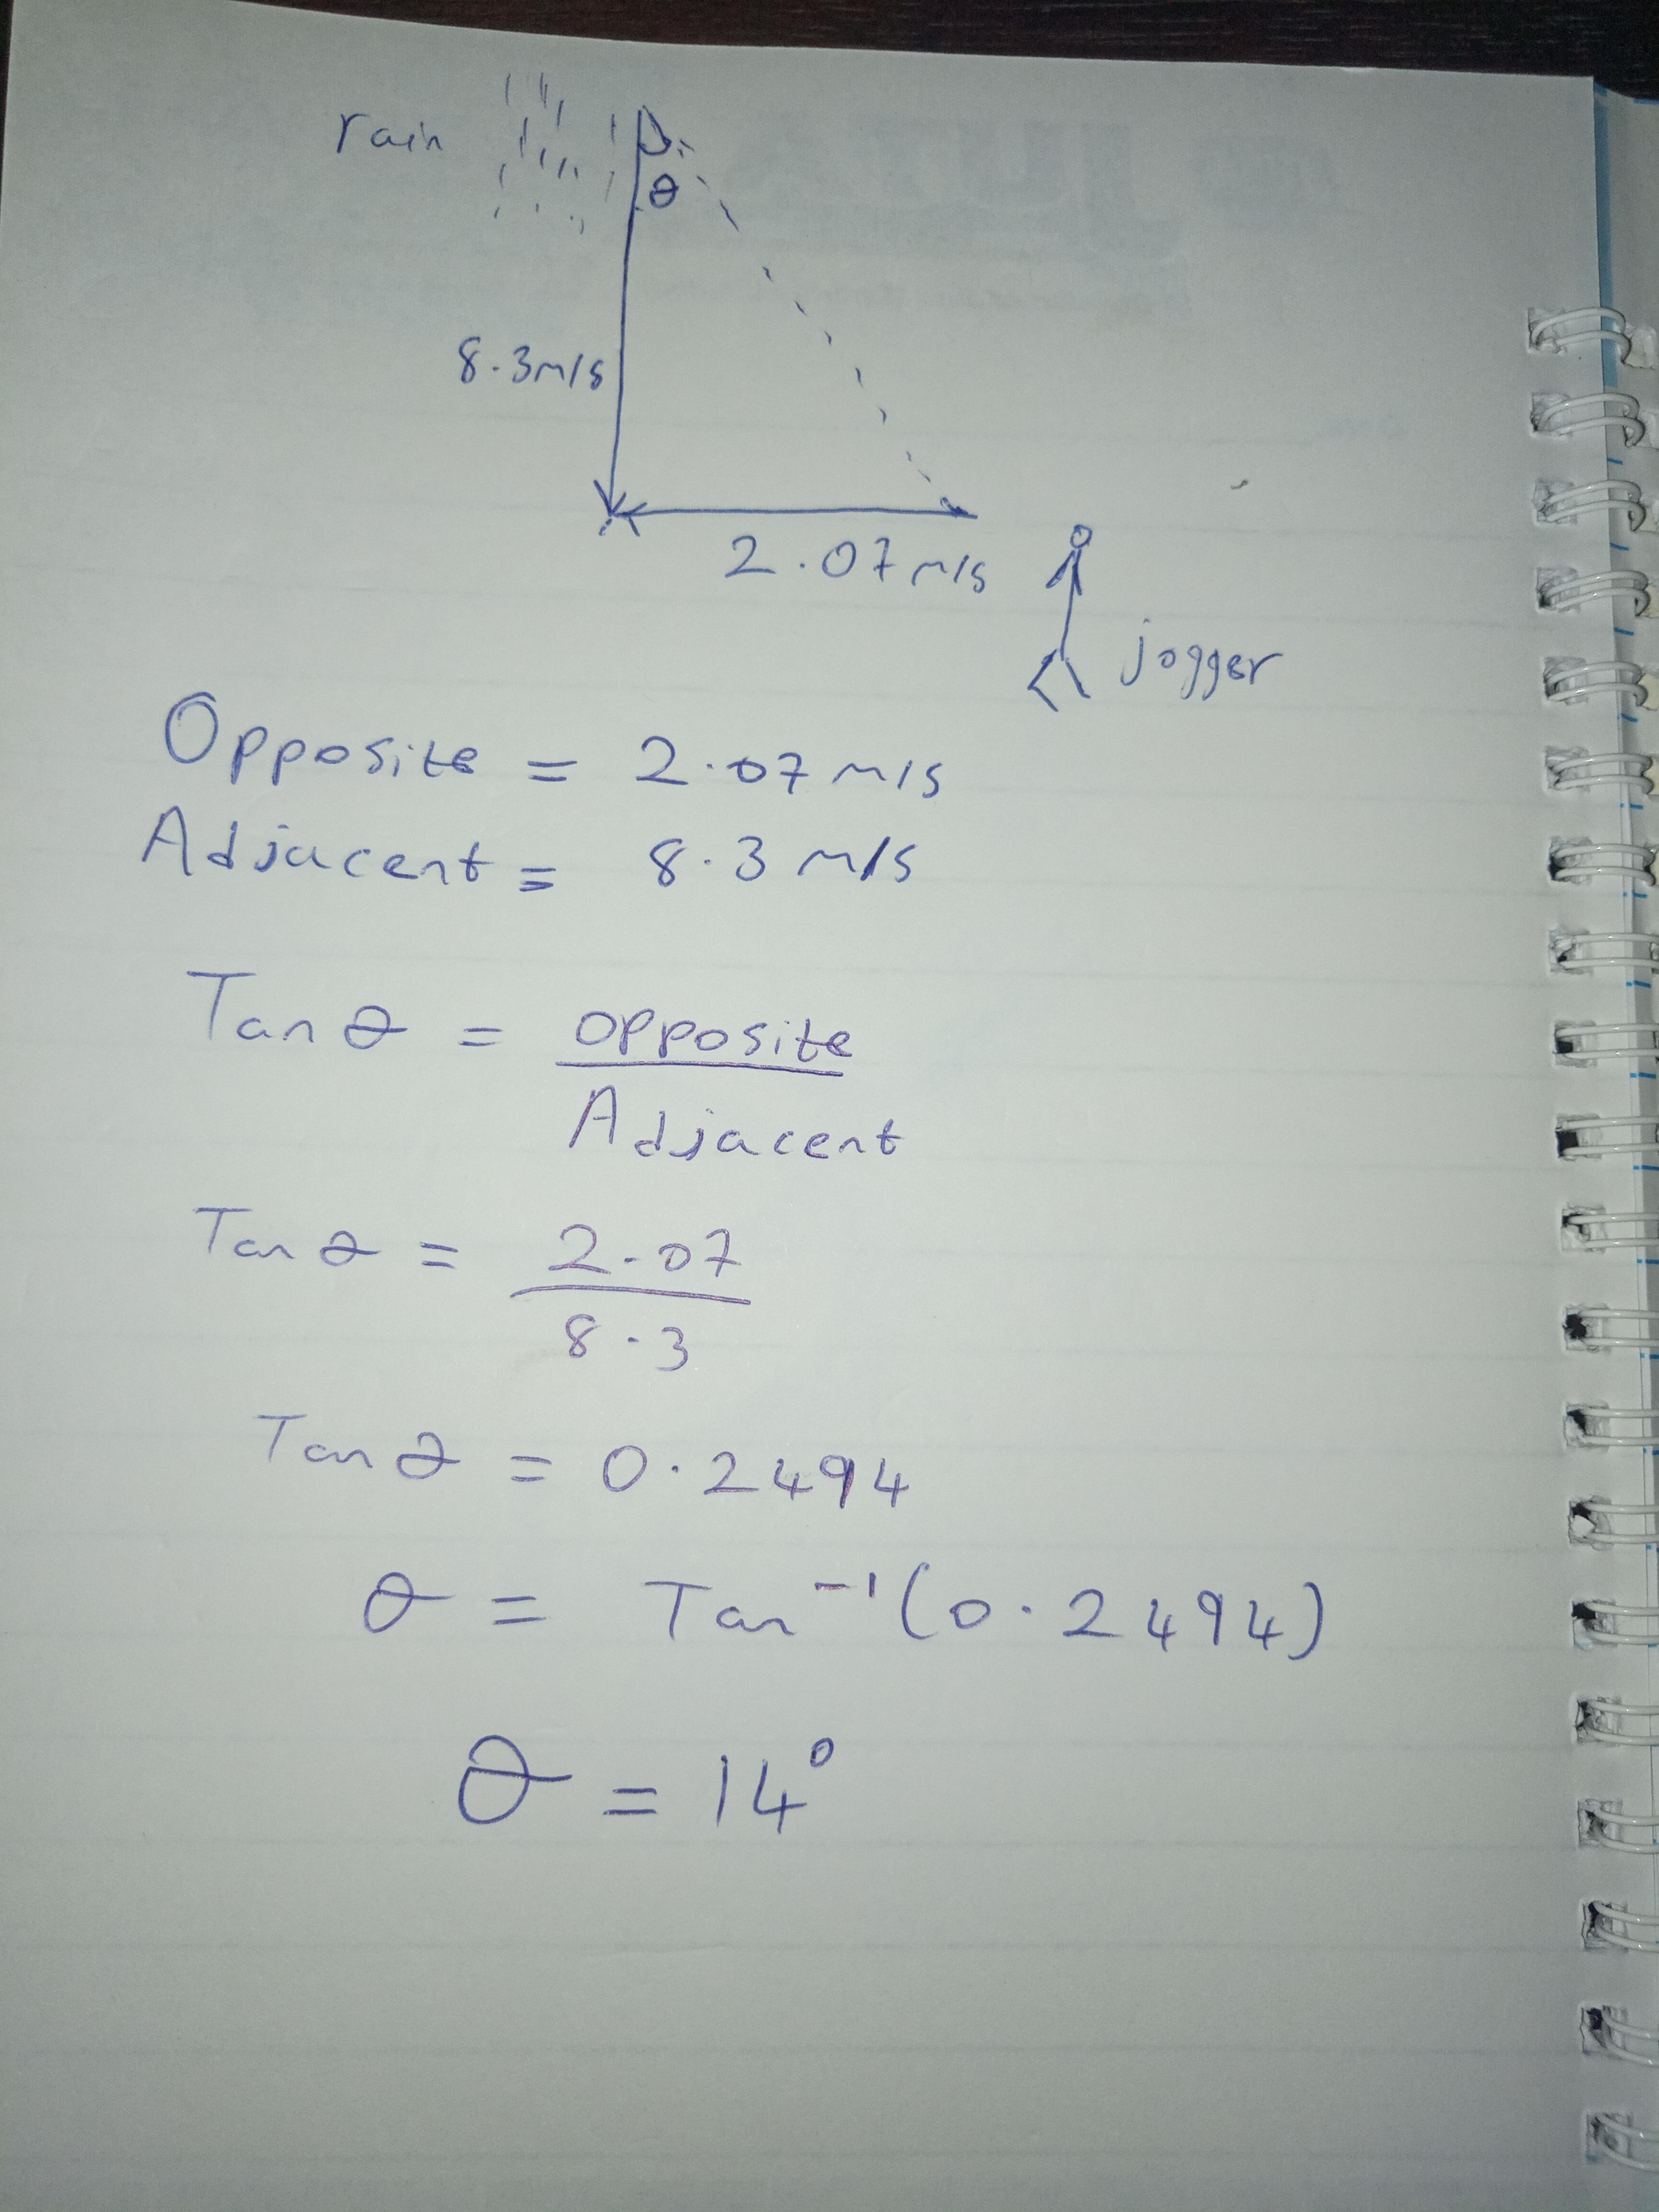 rain
θ
8.3m/s
2.07m/s
jogger
Opposite = 2.07 m/s
Adjacent = 8.3 m/s
Tan θ = opposite
Adjacent
Tan θ = 2.07
8.3
Tan θ = 0.2494
θ = Tan⁻¹(0.2494)
θ = 14°